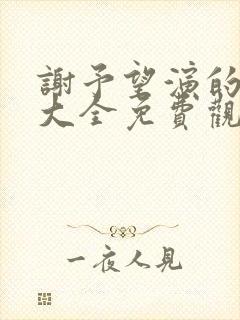 謝予望演的
大全免費觀
一夜人見